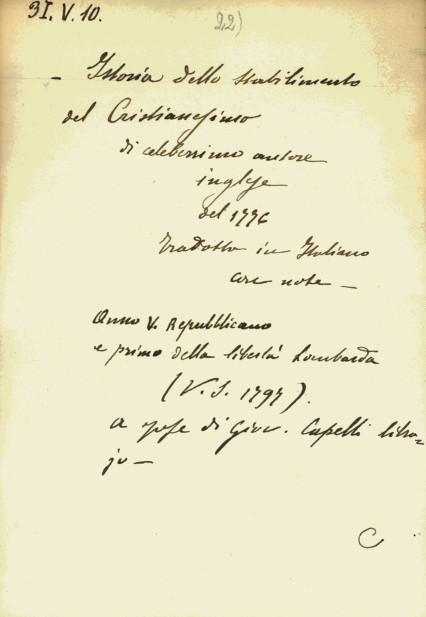 31. V. 10.
22)
- Istoria dello stabilimento
del Cristianesimo
di celeberrimo autore
inglese
del 1776
tradotto in Italiano
con note -
Anno V. Repubblicano
e primo della libertà Lombarda
(V. S. 1797).
a spese di Giov. Capelli libra=
jo -
C